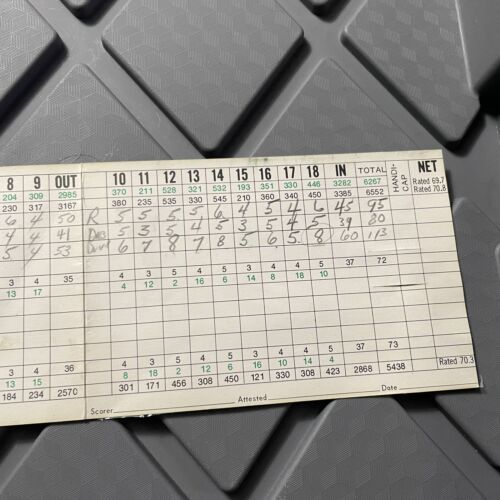 8 9 OUT 10 11 12 13 14 15 16 17 18 IN TOTAL HANDI-CAP NET
204 309 2985 370 211 528 321 532 193 351 330 446 3282 6267 Rated 69.7
230 317 3167 380 235 535 330 545 210 360 340 450 3385 6552 Rated 70.8
6 4 50 R 5 5 5 5 6 4 5 4 6 45 95
4 4 41 5 3 5 4 5 3 5 4 5 39 80
5 4 53 6 7 8 7 8 5 6 5 8 60 113
3 4 35 4 3 5 4 5 3 4 4 5 37 72
13 17 4 12 2 16 6 14 8 18 10
3 4 36 4 3 5 4 5 3 4 4 5 37 73
13 15 8 18 2 12 6 16 10 14 4 Rated 70.3
184 234 2570 301 171 456 308 450 121 330 308 423 2868 5438
Scorer Attested Date